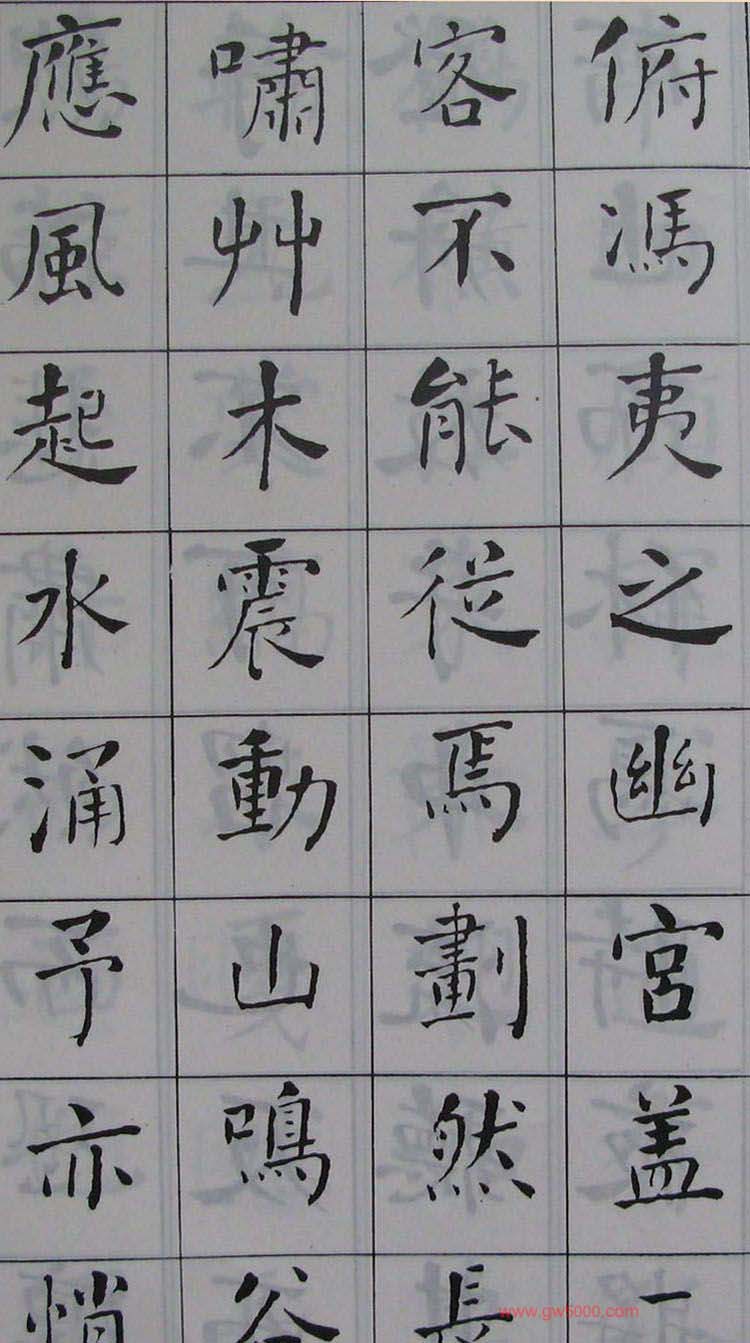 俯馮夷之幽宮盖二
客不能從焉劃然長
嘯艸木震動山鳴谷
應風起水涌予亦悄
www.gw5000.com